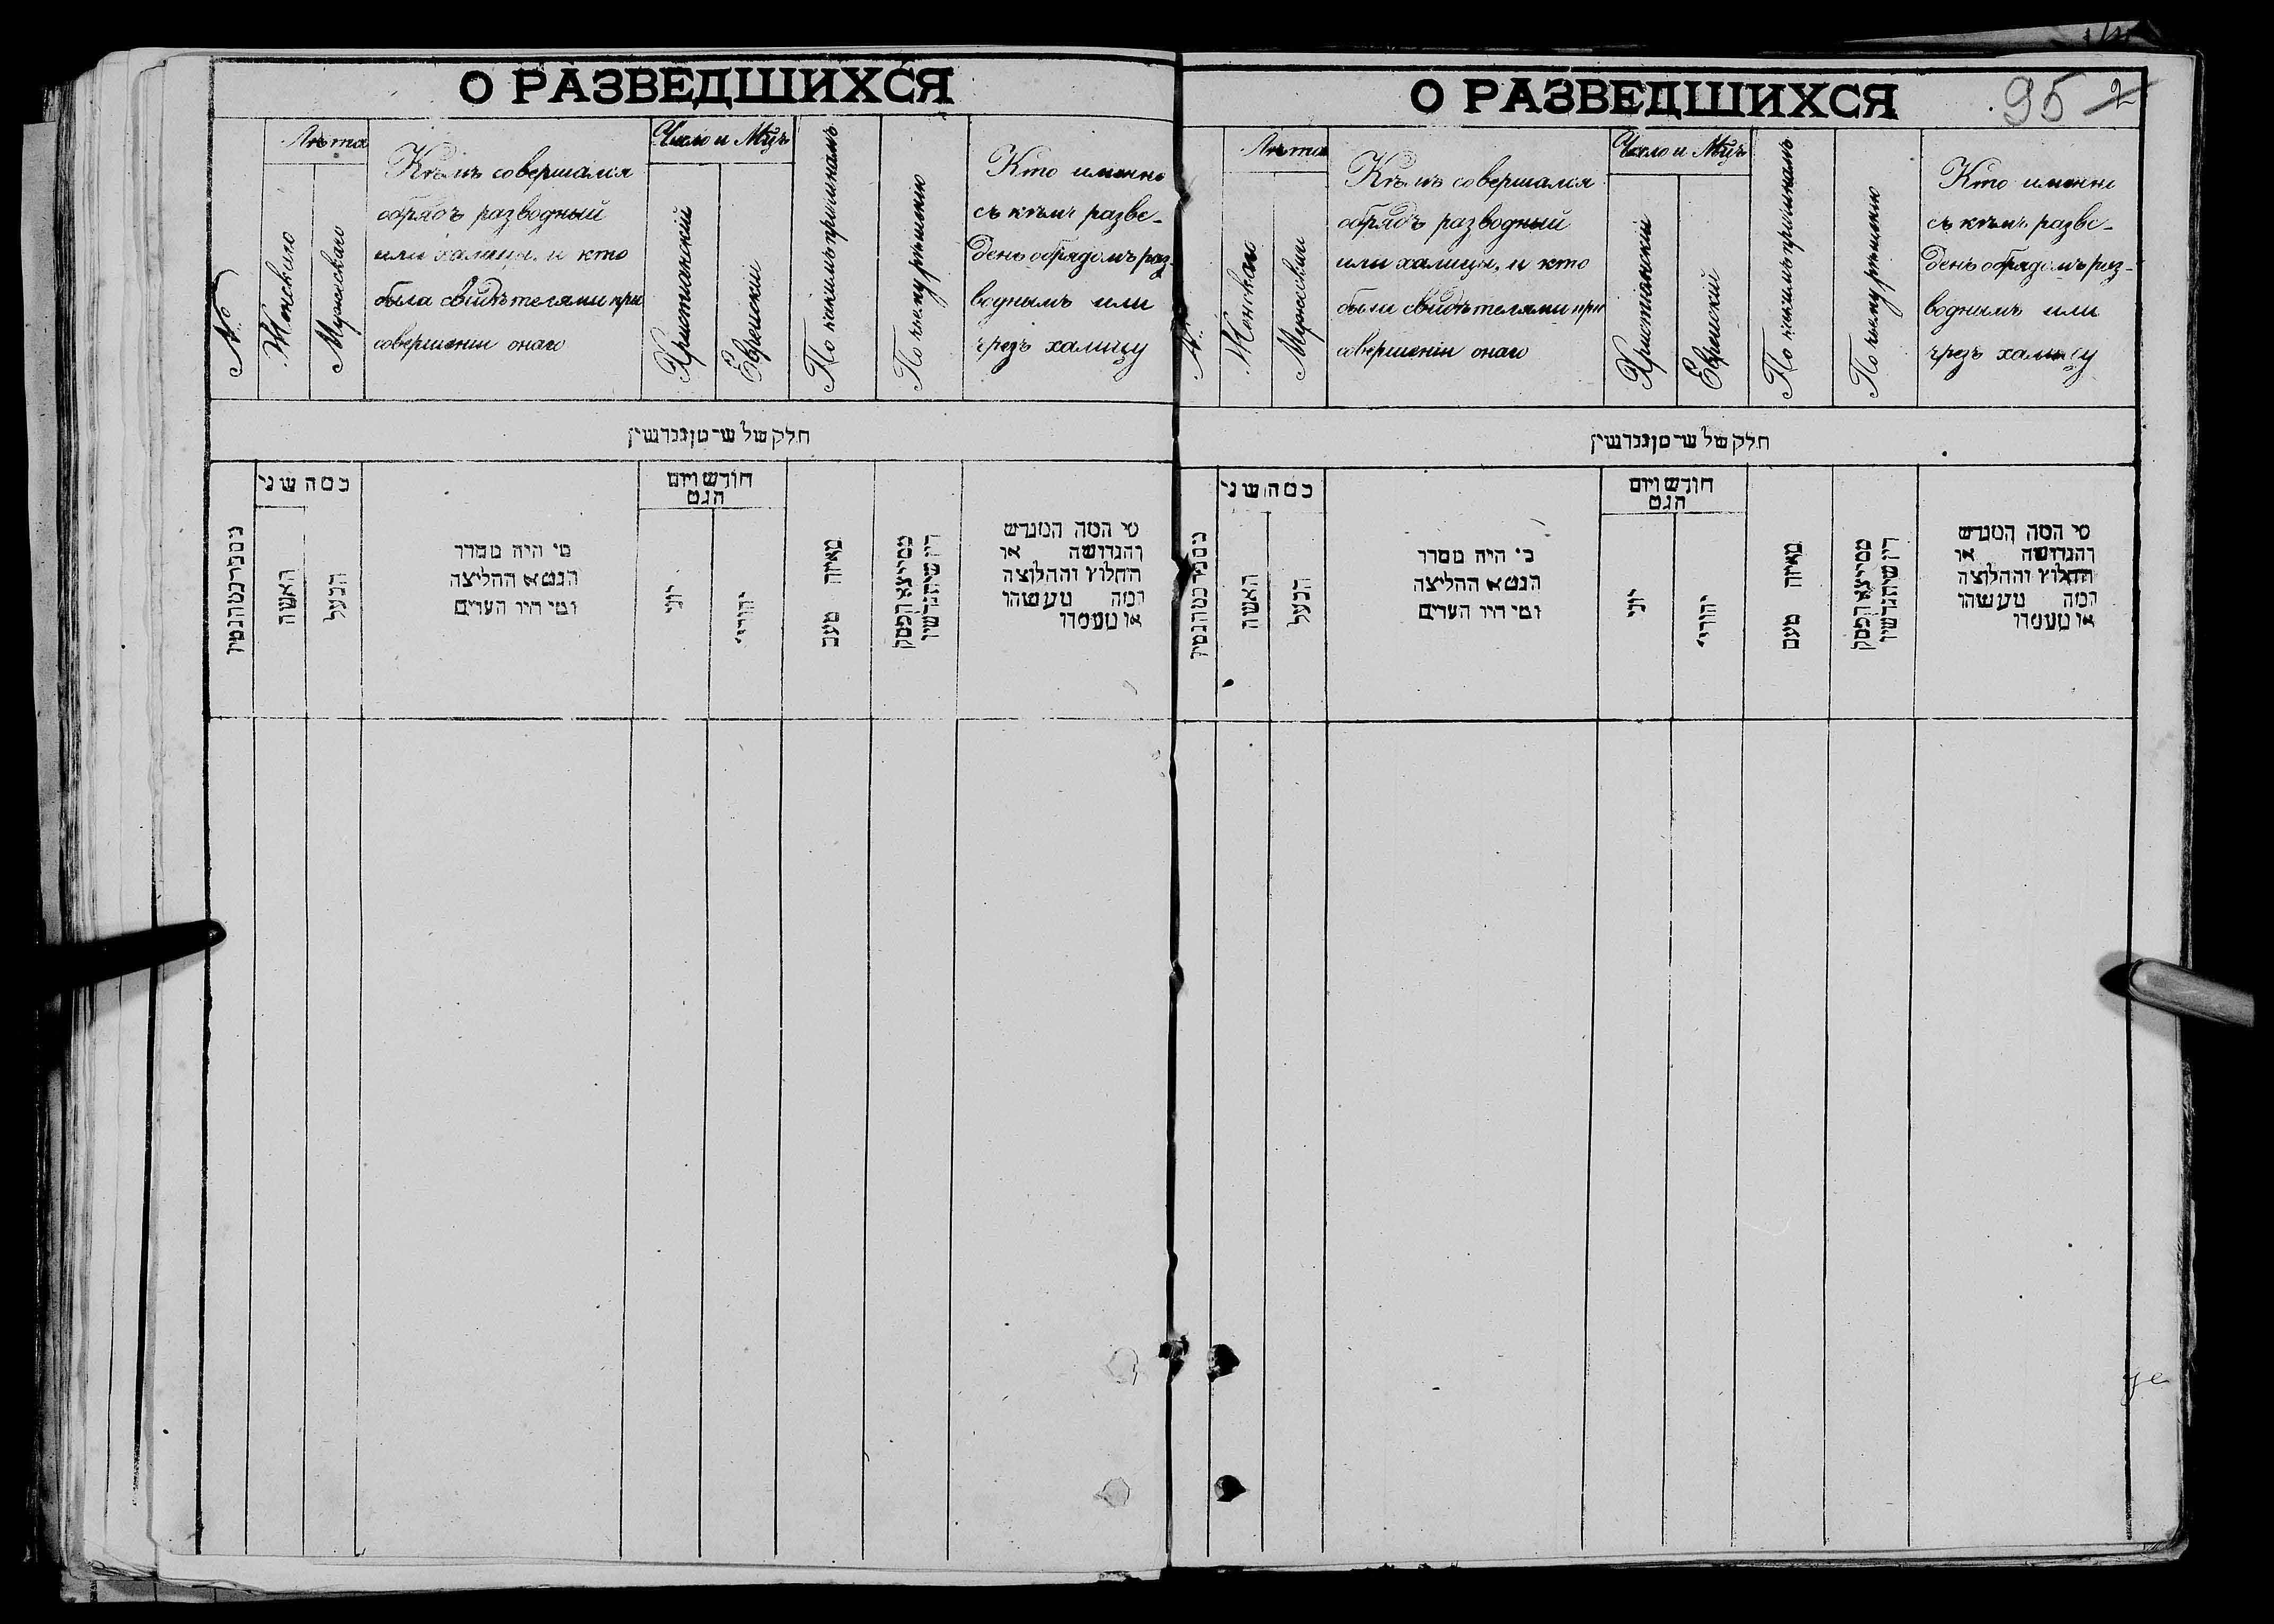 О РАЗВЕДШИХСЯ
№
Лѣта
Женскаго
Мужескаго
Кѣмъ совершался
обрядъ разводный
или халицы, и кто
были свидѣтелями при
совершеніи онаго
Число и Мцъ
Христіанскій
Еврейскій
По какимъ причинамъ
По чьему рѣшенію
Кто именно
съ кѣмъ разве-
денъ обрядомъ раз-
воднымъ или
чрезъ халицу
כמה שני
האשה
הבעל
מי היה מסדר
הגט א ההליצה
ומי היו העדים
חודש ויום
הגט
יוני
יהודיי
מאיזה טעם
מי המה המגרש
והגרושה או
החלוץ וההלוצה
ומה מעשהו
או מעמדו
О РАЗВЕДШИХСЯ
95 2
№
Лѣта
Женскаго
Мужескаго
Кѣмъ совершался
обрядъ разводный
или халицы, и кто
были свидѣтелями при
совершеніи онаго
Число и Мцъ
Христіанскій
Еврейскій
По какимъ причинамъ
По чьему рѣшенію
Кто именно
съ кѣмъ разве-
денъ обрядомъ раз-
воднымъ или
чрезъ халицу
כמה שני
האשה
הבעל
מי היה מסדר
הגט א ההליצה
ומי היו העדים
חודש ויום
הגט
יוני
יהודיי
מאיזה טעם
מי המה המגרש
והגרושה או
החלוץ וההלוצה
ומה מעשהו
או מעמדו